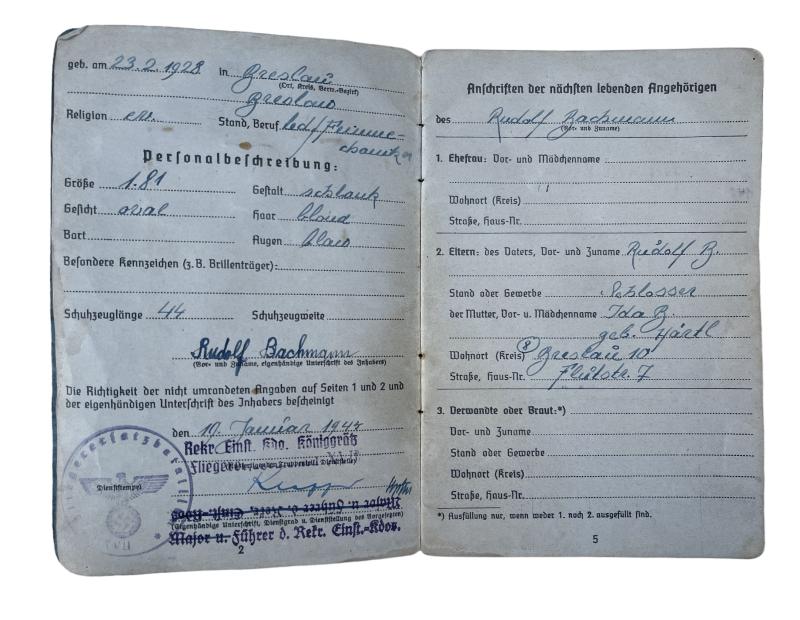 geb. am 23.2.1928 in Breslau
(Ort, Kreis, Verw.-Bezirk)
Breslau
Religion ev. Stand, Beruf led/Feinme-
chanik
Personalbeschreibung:
Größe 1.81 Gestalt schlank
Gesicht oval Haar blond
Bart Augen blau
Besondere Kennzeichen (z. B. Brillenträger):
Schuhzeuglänge 44 Schuhzeugweite
Rudolf Bachmann
(Vor- und Zuname, eigenhändige Unterschrift des Inhabers)
Die Richtigkeit der nicht umrandeten Angaben auf Seiten 1 und 2 und
der eigenhändigen Unterschrift des Inhabers bescheinigt
den 19. Januar 1944
Rekr. Einst. Kdo. Königgrätz
Flieger
Dienststempel
(Eigenhändige Unterschrift, Dienstgrad u. Dienststellung des Vorgesetzten)
Major u. Führer d. Rekr. Einst.-Kdos.
2
Anschriften der nächsten lebenden Angehörigen
des Rudolf Bachmann
(Vor- und Zuname)
1. Ehefrau: Vor- und Mädchenname
Wohnort (Kreis)
Straße, Haus-Nr.
2. Eltern: des Vaters, Vor- und Zuname Rudolf B.
Stand oder Gewerbe Schlosser
der Mutter, Vor- u. Mädchenname Ida B.
geb. Härtl
Wohnort (Kreis) (8) Breslau 10
Straße, Haus-Nr. 7
3. Verwandte oder Braut:*)
Vor- und Zuname
Stand oder Gewerbe
Wohnort (Kreis)
Straße, Haus-Nr.
*) Ausfüllung nur, wenn weder 1. noch 2. ausgefüllt sind.
5